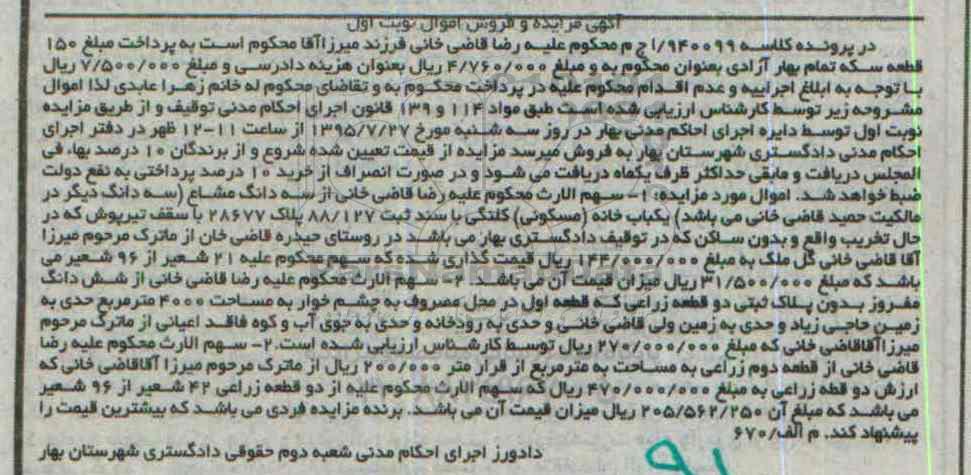 آگهی مزایده و فروش اموال نوبت اول
در پرونده کلاسه ۹۴۰۰۹۹/ا ج م محکوم علیه رضا قاضی خانی فرزند میرزاآقا محکوم است به پرداخت مبلغ ۱۵۰
قطعه سکه تمام بهار آزادی بعنوان محکوم به و مبلغ ۴/۷۶۰/۰۰۰ ریال بعنوان هزینه دادرسی و مبلغ ۷/۵۰۰/۰۰۰ ریال
با توجه به ابلاغ اجراییه و عدم اقدام محکوم علیه در پرداخت محکوم به و تقاضای محکوم له خانم زهرا عابدی لذا اموال
مشروحه زیر توسط کارشناس ارزیابی شده است طبق مواد ۱۱۴ و ۱۳۹ قانون اجرای احکام مدنی توقیف و از طریق مزایده
نوبت اول توسط دایره اجرای احاکم مدنی بهار در روز سه شنبه مورخ ۱۳۹۵/۷/۲۷ از ساعت ۱۱-۱۲ ظهر در دفتر اجرای
احکام مدنی دادگستری شهرستان بهار به فروش میرسد مزایده از قیمت تعیین شده شروع و از برندگان ۱۰ درصد بهاء فی
المجلس دریافت و مابقی حداکثر ظرف یکماه دریافت می شود و در صورت انصراف از خرید ۱۰ درصد پرداختی به نفع دولت
ضبط خواهد شد. اموال مورد مزایده: ۱- سهم الارث محکوم علیه رضا قاضی خانی از سه دانگ مشاع (سه دانگ دیگر در
مالکیت حمید قاضی خانی می باشد) یکباب خانه (مسکونی) کلنگی با سند ثبت ۸۸/۱۲۷ پلاک ۲۸۶۷۷ با سقف تیرپوش که در
حال تخریب واقع و بدون ساکن که در توقیف دادگستری بهار می باشد در روستای حیدره قاضی خان از ماترک مرحوم میرزا
آقا قاضی خانی کل ملک به مبلغ ۱۴۴/۰۰۰/۰۰۰ ریال قیمت گذاری شده که سهم محکوم علیه ۲۱ شعیر از ۹۶ شعیر می
باشد که مبلغ ۳۱/۵۰۰/۰۰۰ ریال میزان قیمت آن می باشد. ۲- سهم الارث محکوم علیه رضا قاضی خانی از شش دانگ
مفروز بدون پلاک ثبتی دو قطعه زراعی که قطعه اول در محل معروف به چشم خوار به مساحت ۴۰۰۰ مترمربع حدی به
زمین حاجی زیاد و حدی به زمین ولی قاضی خانی و حدی به رودخانه و حدی به جوی آب و کوه فاقد اعیانی از ماترک مرحوم
میرزاآقاقاضی خانی که مبلغ ۲۷۰/۰۰۰/۰۰۰ ریال توسط کارشناس ارزیابی شده است. ۲- سهم الارث محکوم علیه رضا
قاضی خانی از قطعه دوم زراعی به مساحت به مترمربع از قرار متر ۲۰۰/۰۰۰ ریال از ماترک مرحوم میرزا آقاقاضی خانی که
ارزش دو قطه زراعی به مبلغ ۴۷۰/۰۰۰/۰۰۰ ریال که سهم الارث محکوم علیه از دو قطعه زراعی ۴۲ شعیر از ۹۶ شعیر
می باشد که مبلغ آن ۲۰۵/۵۶۲/۲۵۰ ریال میزان قیمت آن می باشد. برنده مزایده فردی می باشد که بیشترین قیمت را
پیشنهاد کند. م الف/۶۷۰
دادورز اجرای احکام مدنی شعبه دوم حقوقی دادگستری شهرستان بهار
۹۱